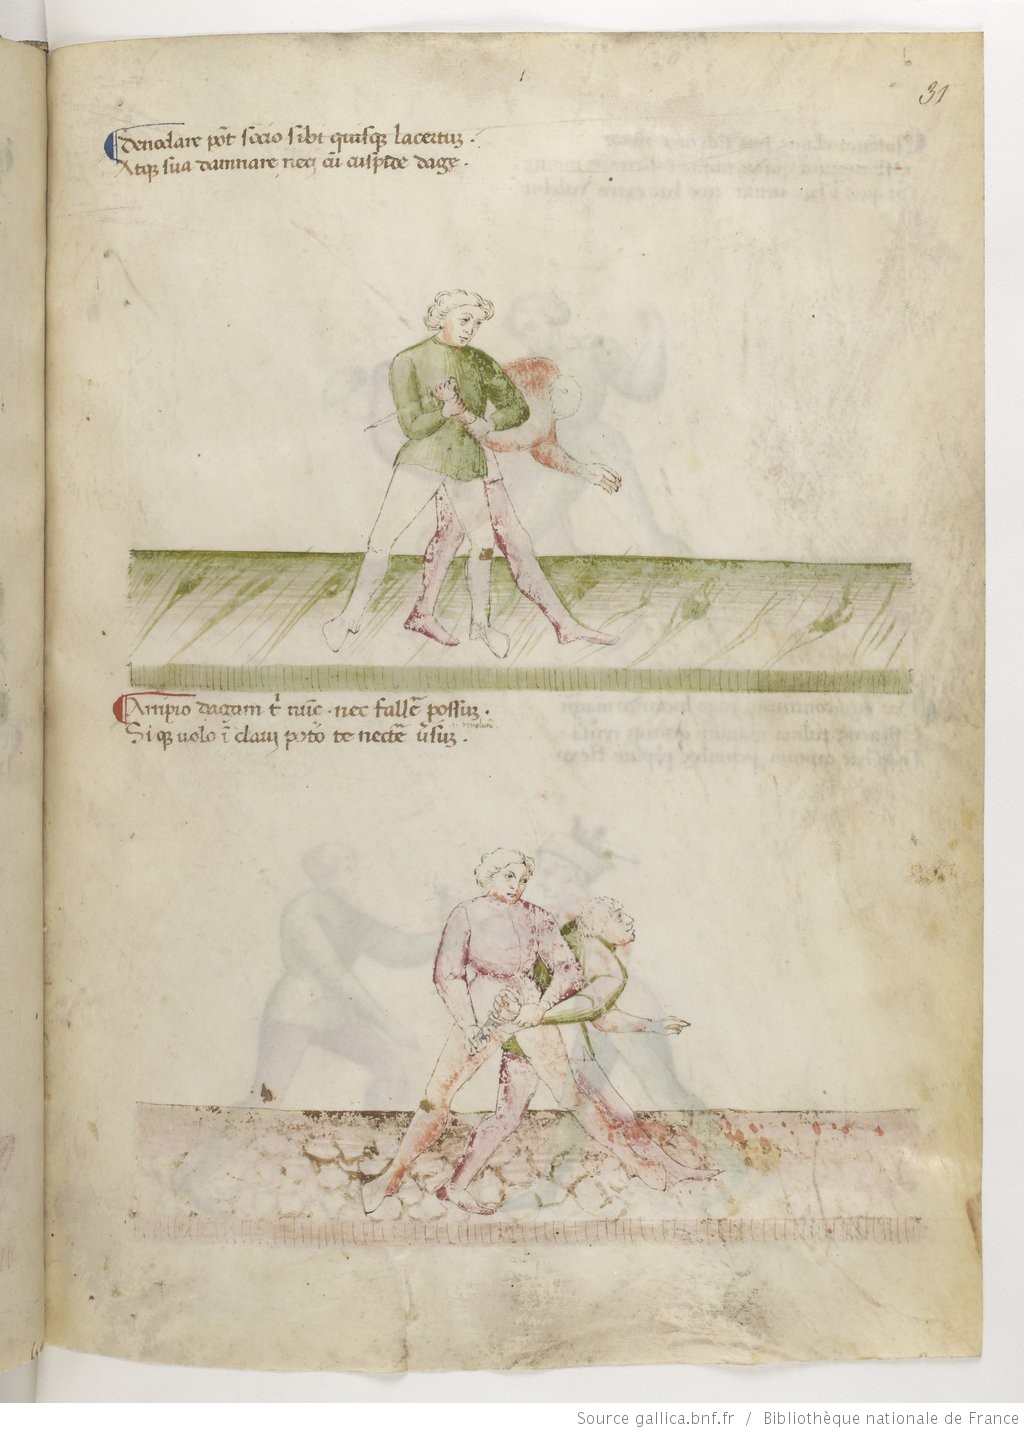 31
Denodare pōt socio sibi quisq̨ lacertuʒ .
Atq̨ sua damnare neci cū cuspide dage .
Arripio dagam t̄ nūc . nec fallē possuʒ .
Siq̨ uolo ī clauj poto te nectē ūsuʒ .
Source gallica.bnf.fr / Bibliothèque nationale de France